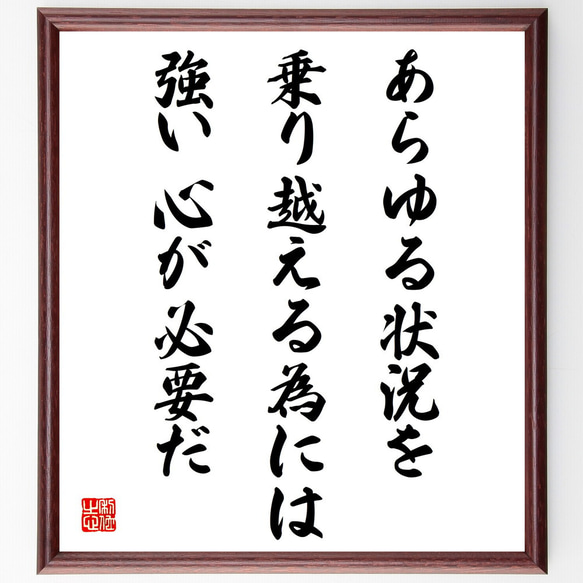 あらゆる状況を
乗り越える為には
強い心が必要だ